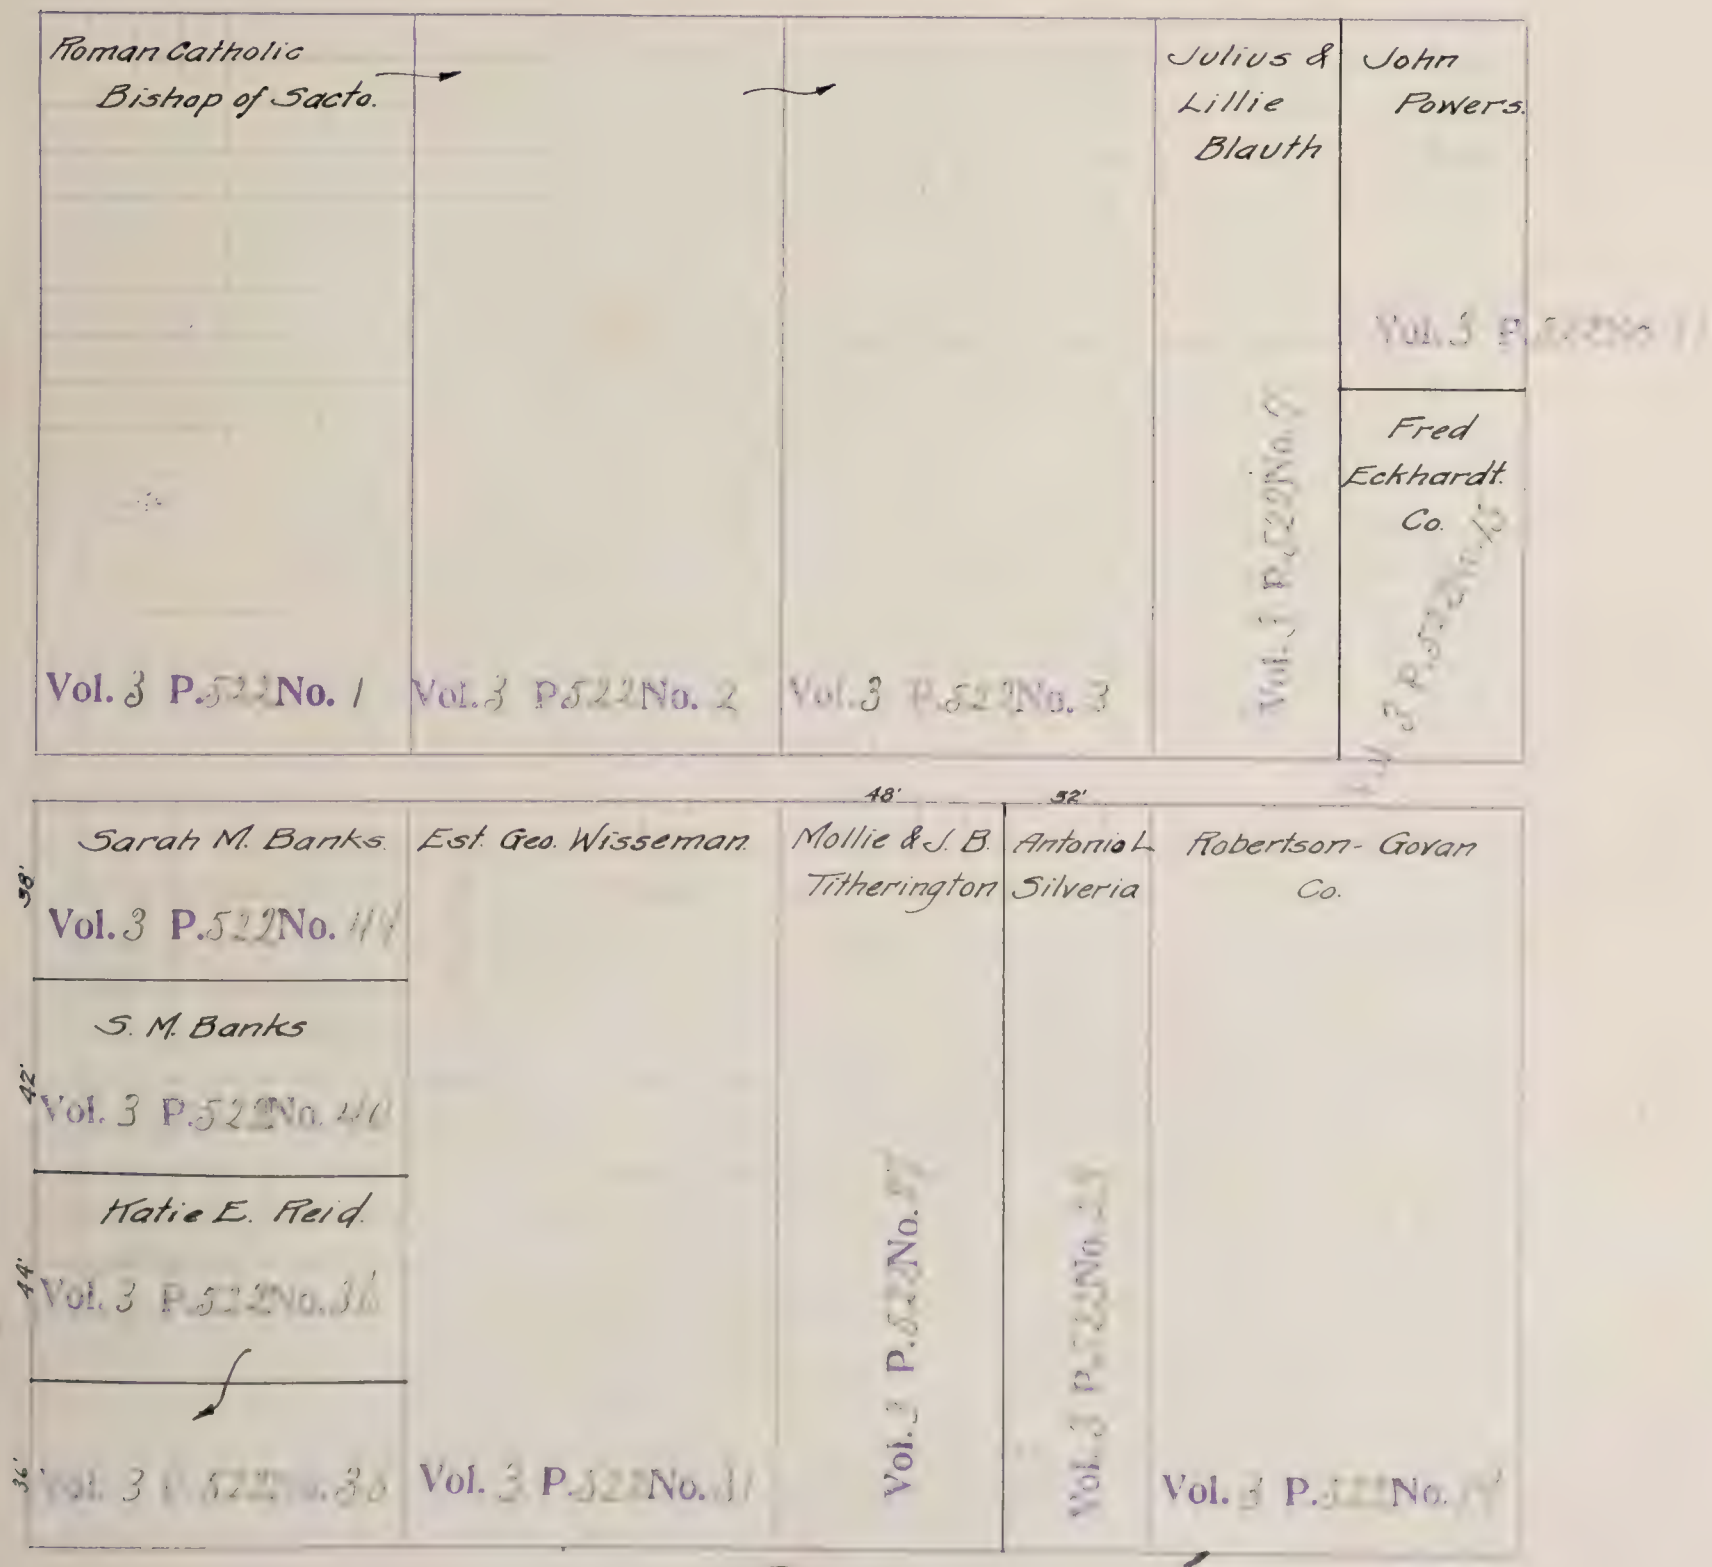 Roman Catholic
Bishop of Sacto.
Vol. 3 P. 522 No. 1
Vol. 3 P. 522 No. 2
Vol. 3 P. 522 No. 3
Julius &
Lillie
Blauth
Vol. 3 P. 522 No.
John
Powers.
Vol. 3 P. 522 No. 11
Fred
Eckhardt.
Co.
Vol. 3 P. 522 No. 15
48'
32'
38'
Sarah M. Banks.
Vol. 3 P. 522 No. 44
42'
S. M. Banks
Vol. 3 P. 522 No. 40
44'
Katie E. Reid.
Vol. 3 P. 522 No. 36
36'
Vol. 3 P. 522 No. 36
Est. Geo. Wisseman.
Vol. 3 P. 522 No. 31
Mollie & J. B.
Titherington
Vol. 3 P. 522 No. 27
Antonio L
Silveria
Vol. 3 P. 522 No. 23
Robertson-Govan
Co.
Vol. 3 P. 522 No.